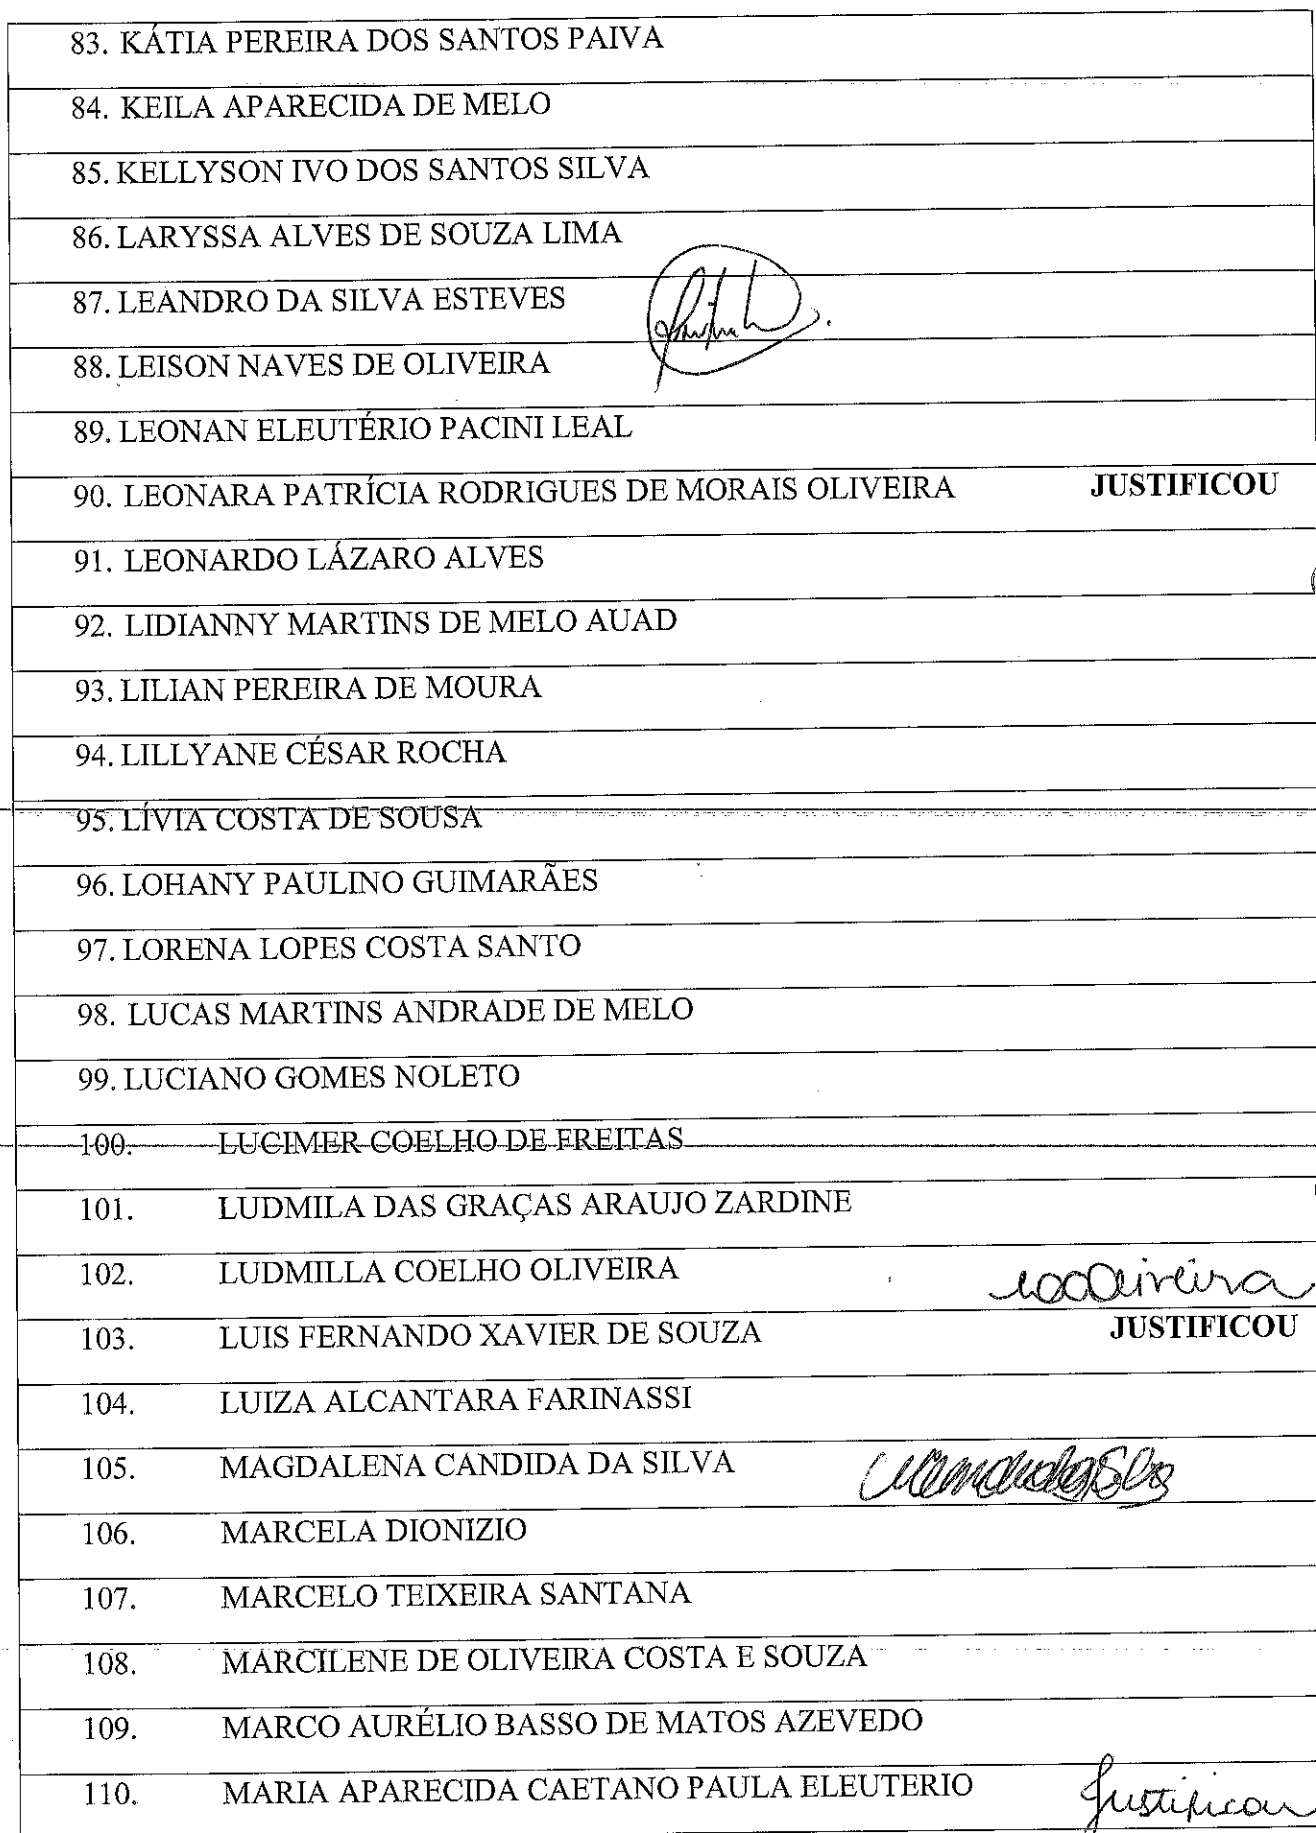 83. KÁTIA PEREIRA DOS SANTOS PAIVA
84. KEILA APARECIDA DE MELO
85. KELLYSON IVO DOS SANTOS SILVA
86. LARYSSA ALVES DE SOUZA LIMA
87. LEANDRO DA SILVA ESTEVES
88. LEISON NAVES DE OLIVEIRA
89. LEONAN ELEUTÉRIO PACINI LEAL
90. LEONARA PATRÍCIA RODRIGUES DE MORAIS OLIVEIRA JUSTIFICOU
91. LEONARDO LÁZARO ALVES
92. LIDIANNY MARTINS DE MELO AUAD
93. LILIAN PEREIRA DE MOURA
94. LILLYANE CÉSAR ROCHA
95. LÍVIA COSTA DE SOUSA
96. LOHANY PAULINO GUIMARÃES
97. LORENA LOPES COSTA SANTO
98. LUCAS MARTINS ANDRADE DE MELO
99. LUCIANO GOMES NOLETO
100. LUCIMER COELHO DE FREITAS
101. LUDMILA DAS GRAÇAS ARAUJO ZARDINE
102. LUDMILLA COELHO OLIVEIRA
103. LUIS FERNANDO XAVIER DE SOUZA JUSTIFICOU
104. LUIZA ALCANTARA FARINASSI
105. MAGDALENA CANDIDA DA SILVA
106. MARCELA DIONIZIO
107. MARCELO TEIXEIRA SANTANA
108. MARCILENE DE OLIVEIRA COSTA E SOUZA
109. MARCO AURÉLIO BASSO DE MATOS AZEVEDO
110. MARIA APARECIDA CAETANO PAULA ELEUTERIO Justificou